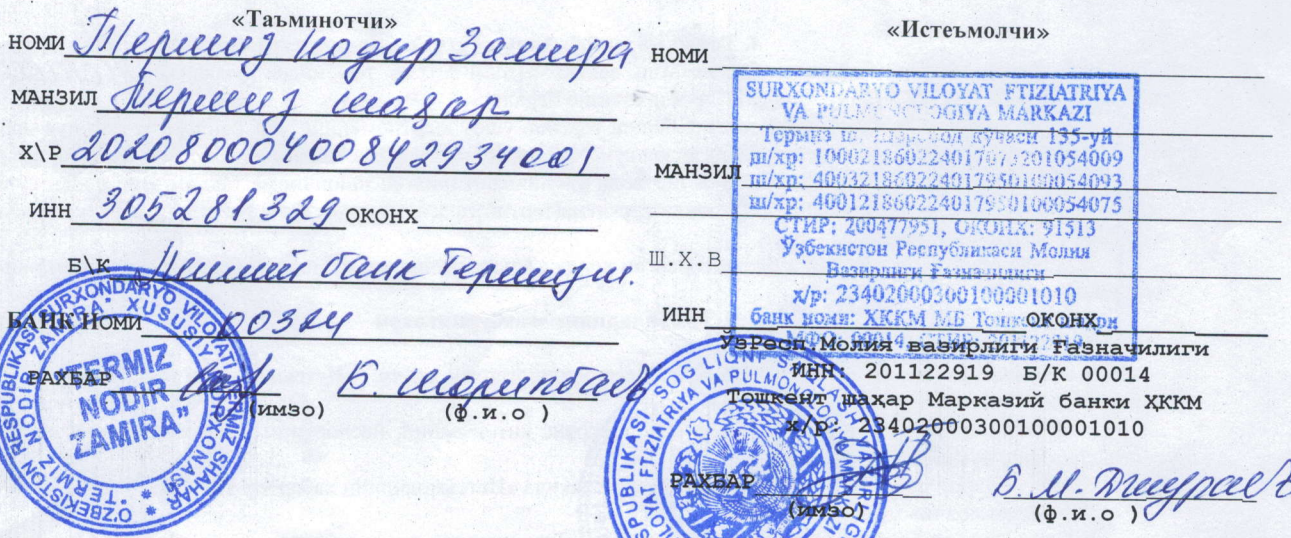 «Таъминотчи»
НОМИ Термиз Нодир Замира
МАНЗИЛ Термиз шаҳар
Х\Р 20208000400842934001
ИНН 305281329 ОКОНХ
Б\К Миллий банк Термизш.
БАНК НОМИ 00324
РАХБАР
(имзо) (ф.и.о )
O'ZBEKISTON RESPUBLIKASI SURXONDARYO VILOYATI TERMIZ SHAHAR
"TERMIZ NODIR ZAMIRA" XUSUSIY KORXONASI
* TERMIZ *
"TERMIZ
NODIR
ZAMIRA"
«Истеъмолчи»
НОМИ
SURXONDARYO VILOYAT FTIZIATRIYA
VA PULMONOLOGIYA MARKAZI
Термиз ш. кўчаси 135-уй
ш/хр: 100021860224017073201054009
МАНЗИЛ
ш/хр: 400321860224017950100054093
ш/хр: 400121860224017950100054075
СТИР: 200477951, ОКОНХ: 91513
Ўзбекистон Республикаси Молия
Ш.Х.В
Вазирлиги Ғазначилиги
х/р: 23402000300100001010
ИНН ОКОНХ
банк номи: ХККМ МБ Тошкент шахри
МФО: 00014, СТИР: 201122919
УзРесп.Молия вазирлиги Ғазначилиги
ИНН: 201122919 Б/К 00014
Тошкент шаҳар Марказий банки ҲККМ
х/р: 23402000300100001010
РАХБАР Б. М.
(имзо) (ф.и.о )